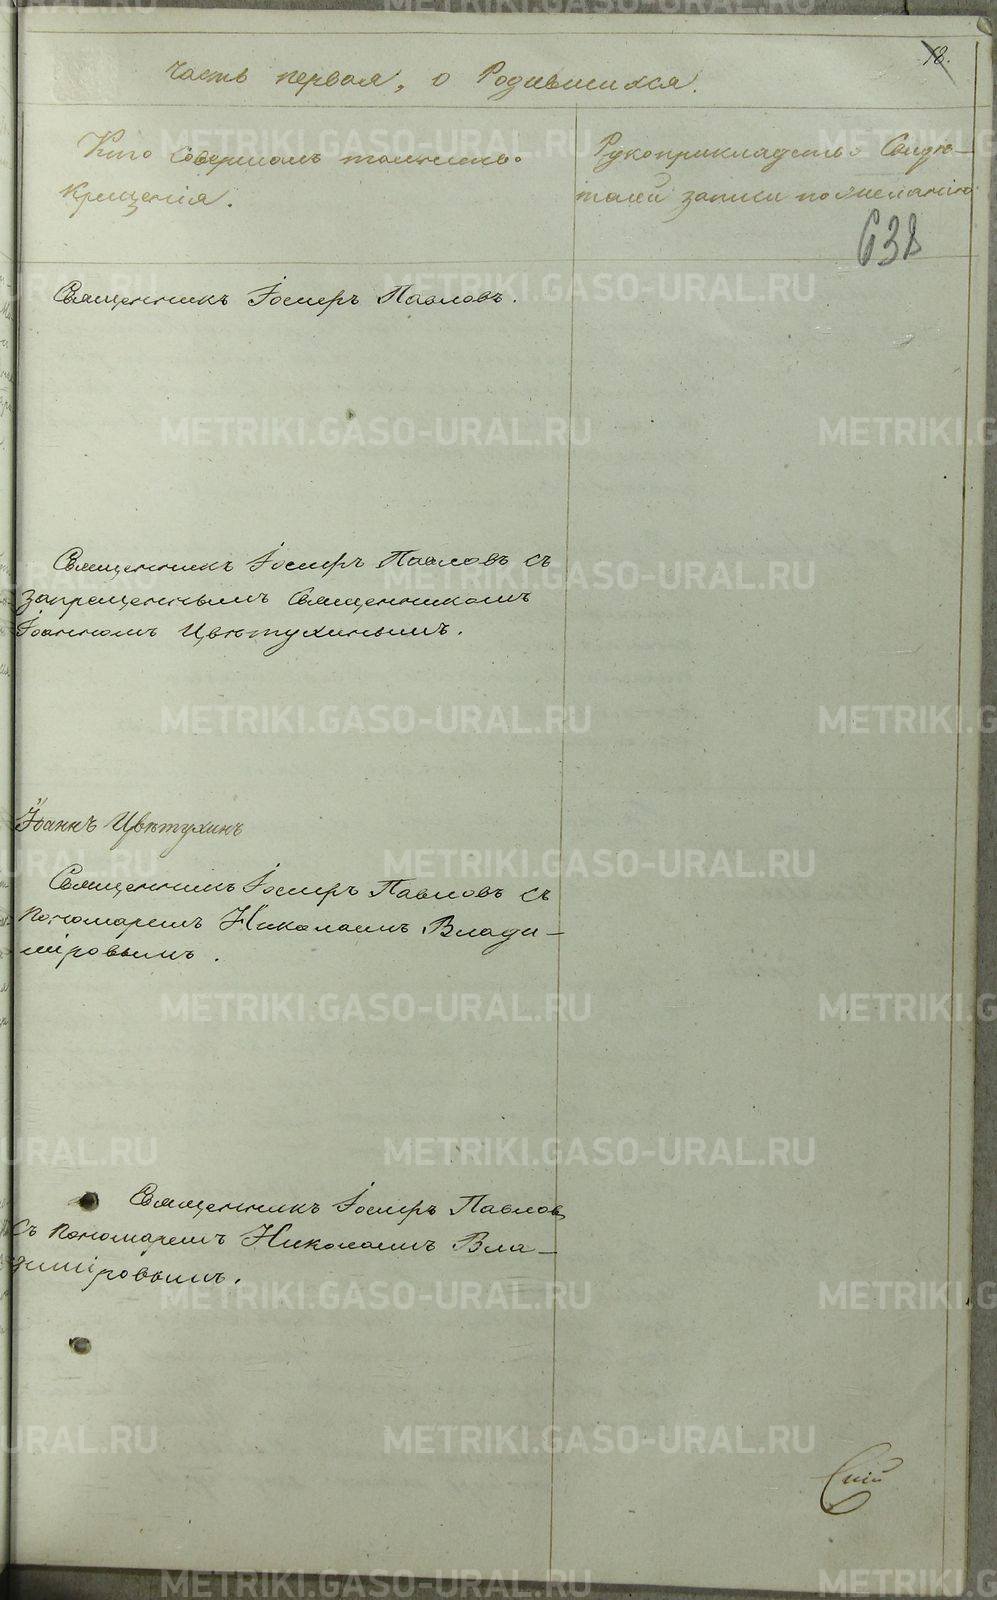 18.
Часть первая, о Родившихся.
Кто совершалъ таинство
крещенія.
Рукоприкладство свидѣ-
телей записи по желанію
638
Священникъ Іосифъ Павловъ.
Священникъ Іосифъ Павловъ съ
запрещеннымъ священникомъ
Іоанномъ Цвѣтухинымъ.
Іоаннъ Цвѣтухинъ
Священникъ Іосифъ Павловъ съ
пономаремъ Николаемъ Влади-
міровымъ.
Священникъ Іосифъ Павловъ
съ пономаремъ Николаемъ Вла-
диміровымъ.
METRIKI.GASO-URAL.RU